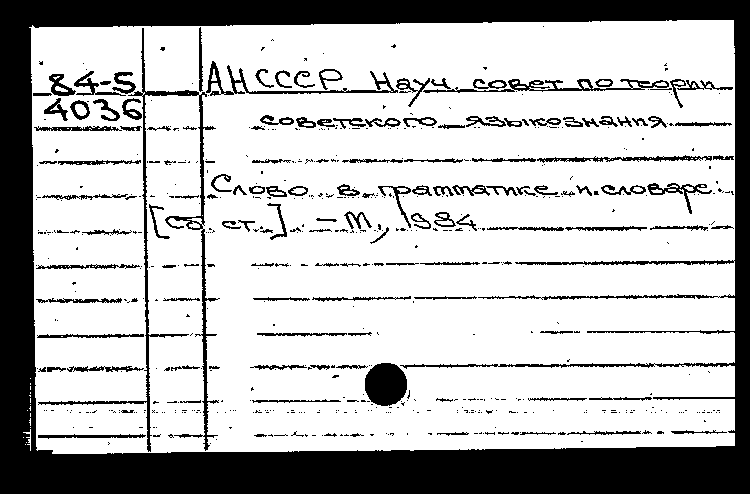 84-5 АН СССР. Науч. совет по теории
4036 советского языкознания
Слово в грамматике и словаре:
[Сб. ст.]. – М., 1984